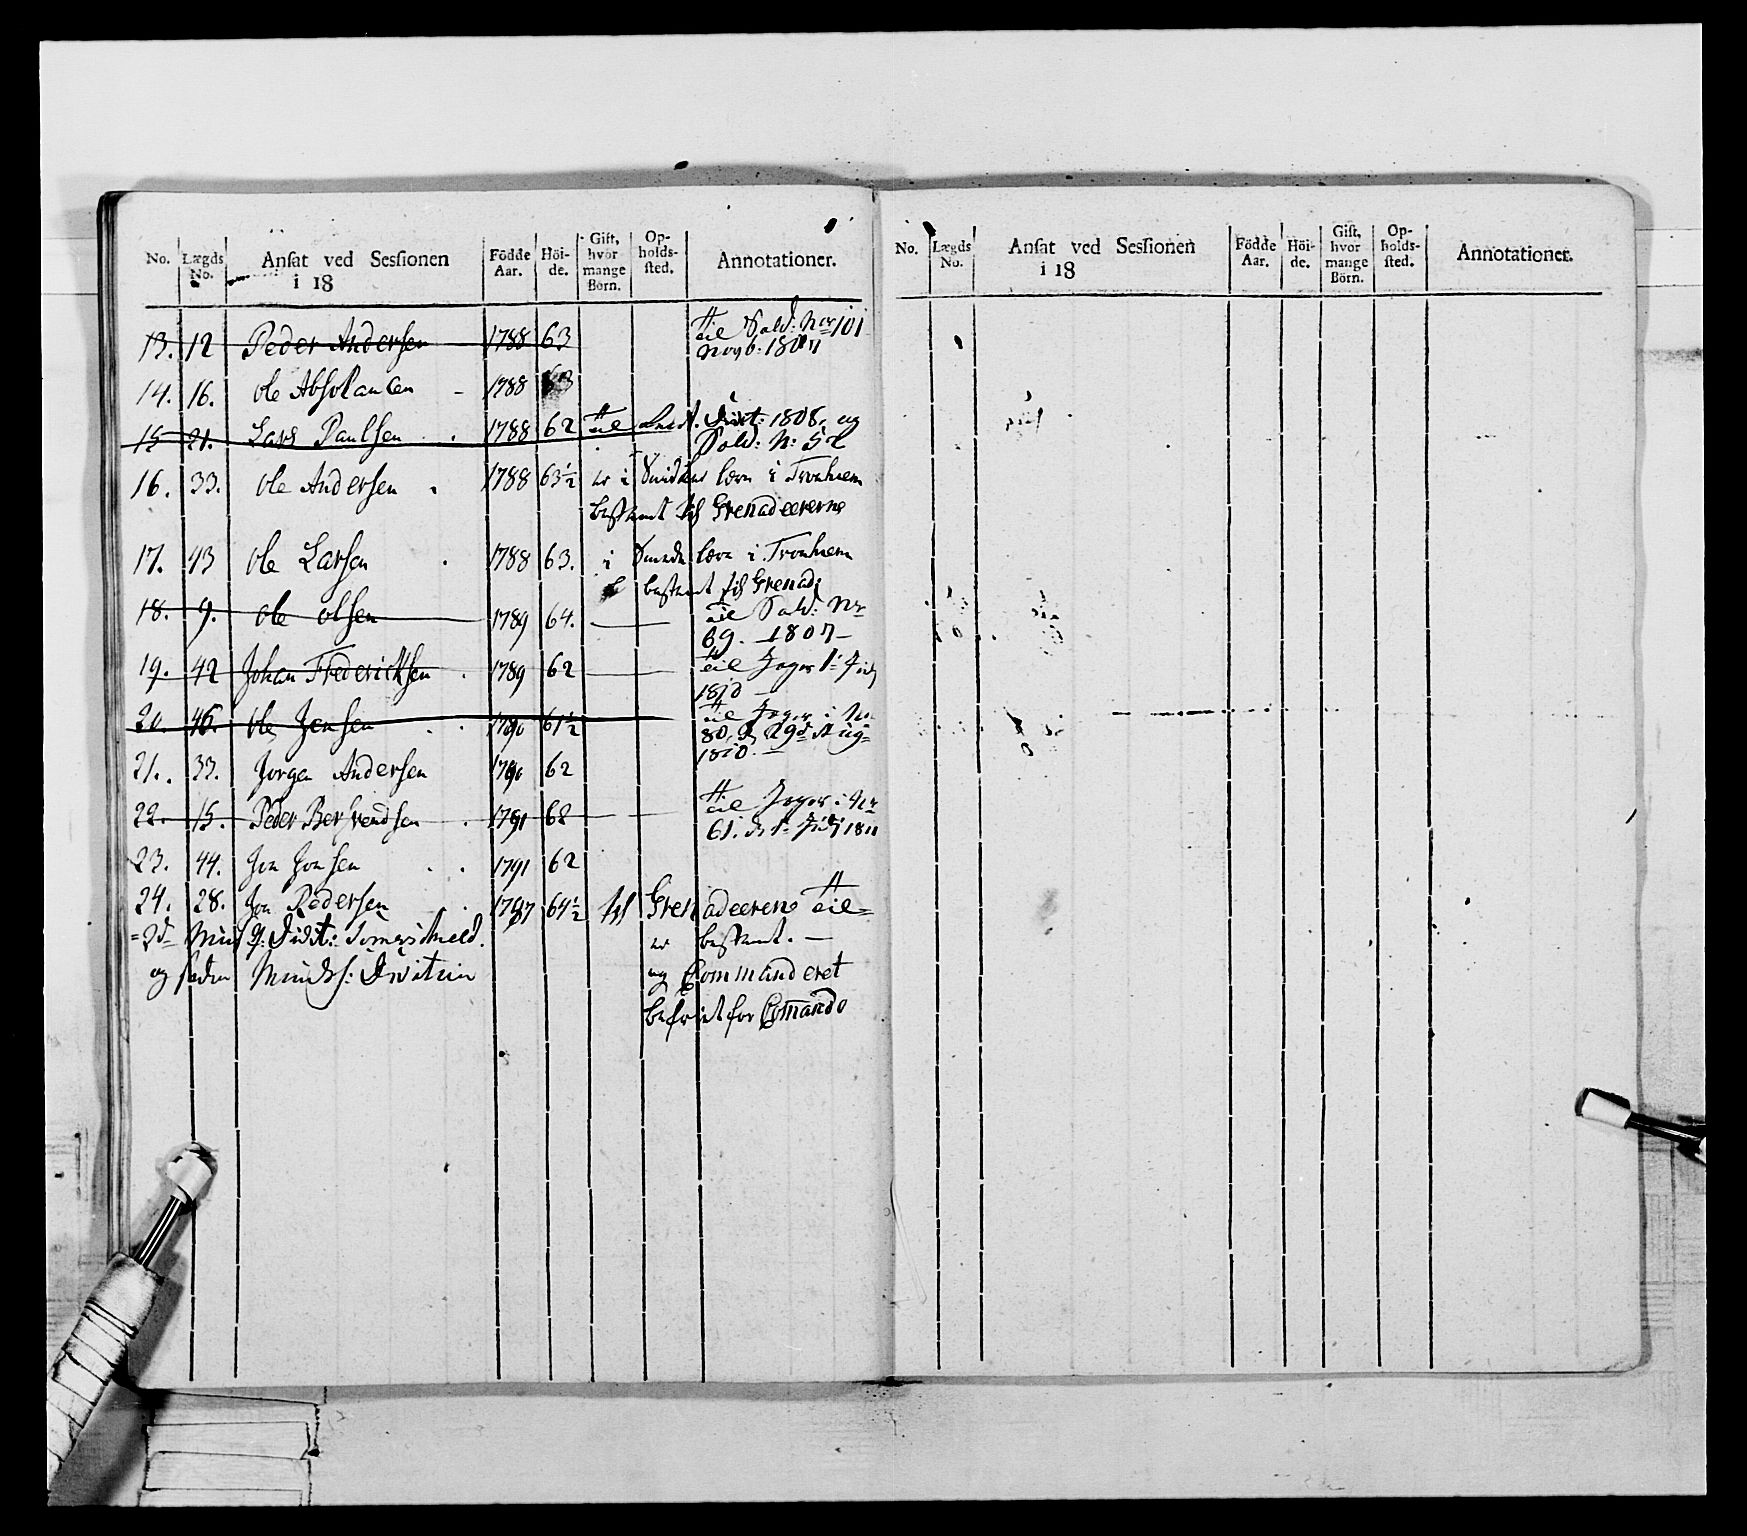 No. Lægds No. Ansat ved Sessionen i 18 Födde Aar. Höide. Gift, hvor mange Börn. Opholdssted. Annotationer.
13. 12 Peder Andersen 1788 63 til Sold: Nr 101
Novb: 180
14. 16. Ole Absolansen 1788 63
15 21. Lars Paulsen 1788 62 til 1808, og
Sold: N: 52
16. 33. Ole Andersen 1788 63½ er i Snidker lære i Tronhiem
bestemt til Grenadeererne
17. 43 Ole Larsen 1788 63. i Smede lære i Tronhiem
bestemt til Grenad:
18. 9. Ole Olsen 1789 64. til Sold: Nr
69. 1807
19. 42 Johan Fredericksen 1789 62 til Jæger
1810
20. 46. Ole Jensen 1790 61½ til Jæger: No
80, d 29d Aug
1810.
21. 33. Jörgen Andersen 1790 62
22. 15. Peder Berhrendsen 1791 62 til Jæger: Nr
61. d 1 1811
23. 44. Jon Jonsen 1791 62
24. 28. Jon Pedersen 1787 64½ til Grenadeerene til=
er bestemt.
og Commanderet
befriet for Comando
No. Lægds No. Ansat ved Sessionen i 18 Födde Aar. Höide. Gift, hvor mange Börn. Opholdssted. Annotationer.